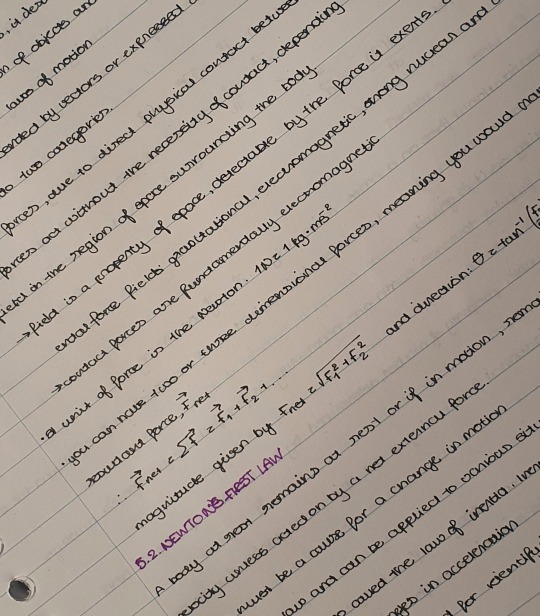 , it des
n of objects and
laws of motion
ented by vectors or expressed
to two categories.
forces, due to direct physical contact between
forces act without the necessity of contact, depending
field in the region of space surrounding the body
→ field is a property of space, detectable by the force it exerts.
ental force fields: gravitational, electromagnetic, strong nuclear and
→ contact forces are fundamentally electromagnetic
• SI unit of force is the Newton: 1N = 1 kg·ms⁻²
• you can have two or three dimensional forces, meaning you would
resultant force, F⃗net
∴ F⃗net = ΣF⃗ = F⃗₁ + F⃗₂ + ...
magnitude given by Fnet = √F₁² + F₂² and direction: θ = tan⁻¹ (F
5.2. NEWTON'S FIRST LAW
A body at rest remains at rest or if in motion, rema
elocity unless acted on by a net external force.
must be a cause for a change in motion
law and can be applied to various situ
so called the law of inertia.
ges in acceleration
l for identify